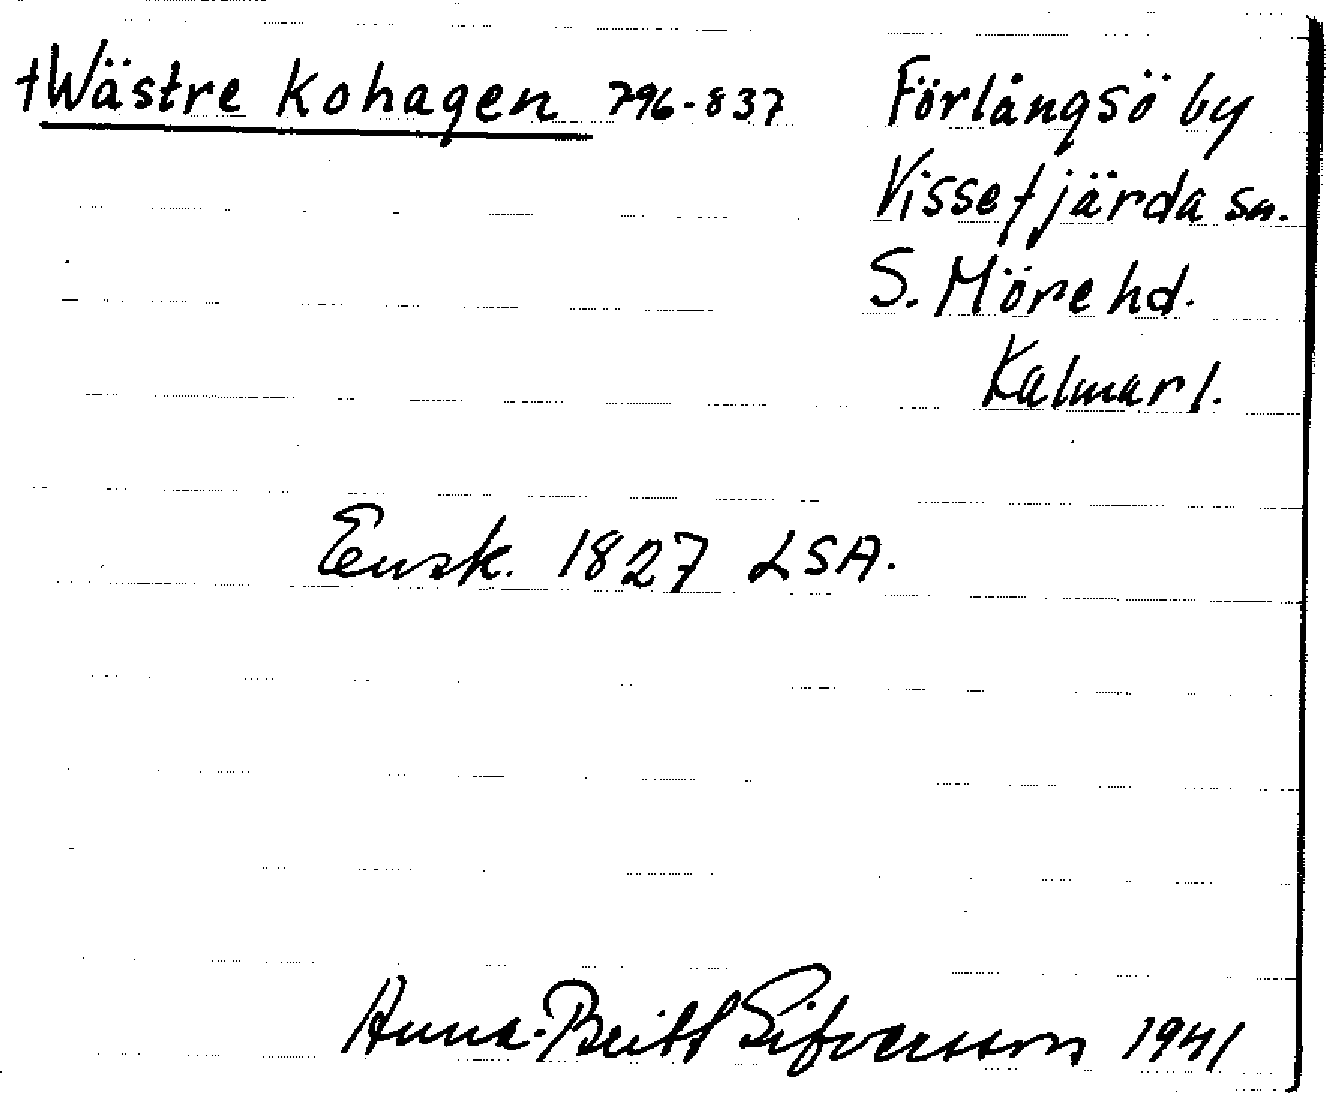 †Wästre Kohagen 796-837
Förlångsö by
Vissefjärda sn.
S. Möre hd.
Kalmar l.
Ensk. 1827 LSA.
Anna-Britt Sifversson 1941